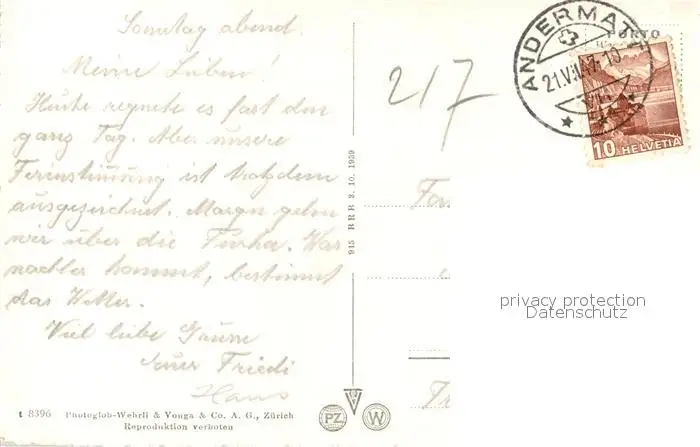 Sonntag abend.
Meine Lieben!
Heute regnete es fast den
ganz Tag. Aber unsere
Ferienstimmung ist trotzdem
ausgezeichnet. Morgen gehen
wir über die Furka. Was
nachher kommt, bestimmt
das Wetter.
Viel liebe Grüsse
Friedi
Hans
t 8396 Photoglob-Wehrli & Vouga & Co. A. G., Zürich
Reproduktion verboten
915 BRB 3. 10. 1939
217
ANDERMATT
PORTO
10 HELVETIA
Fam
privacy protection
Datenschutz
PZ W